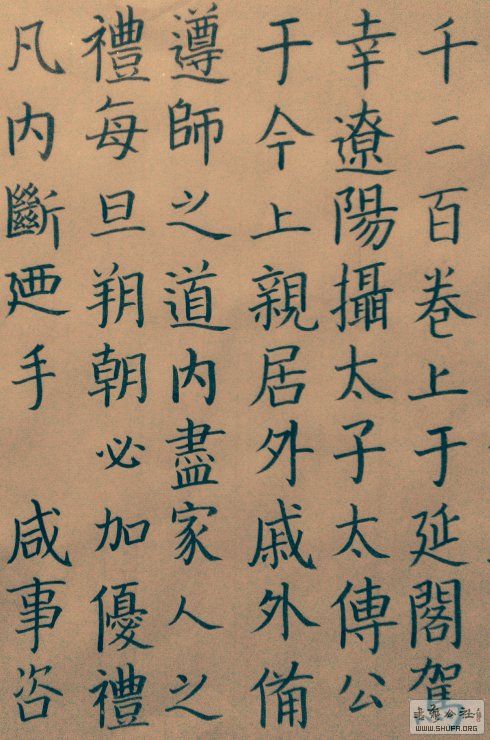 千二百卷上于延閣駕
幸遼陽攝太子太傅公
于今上親居外戚外備
遵師之道内盡家人之
禮每旦朔朝必加優禮
凡内斷廼手 咸事咨
WWW.SHUFA.ORG